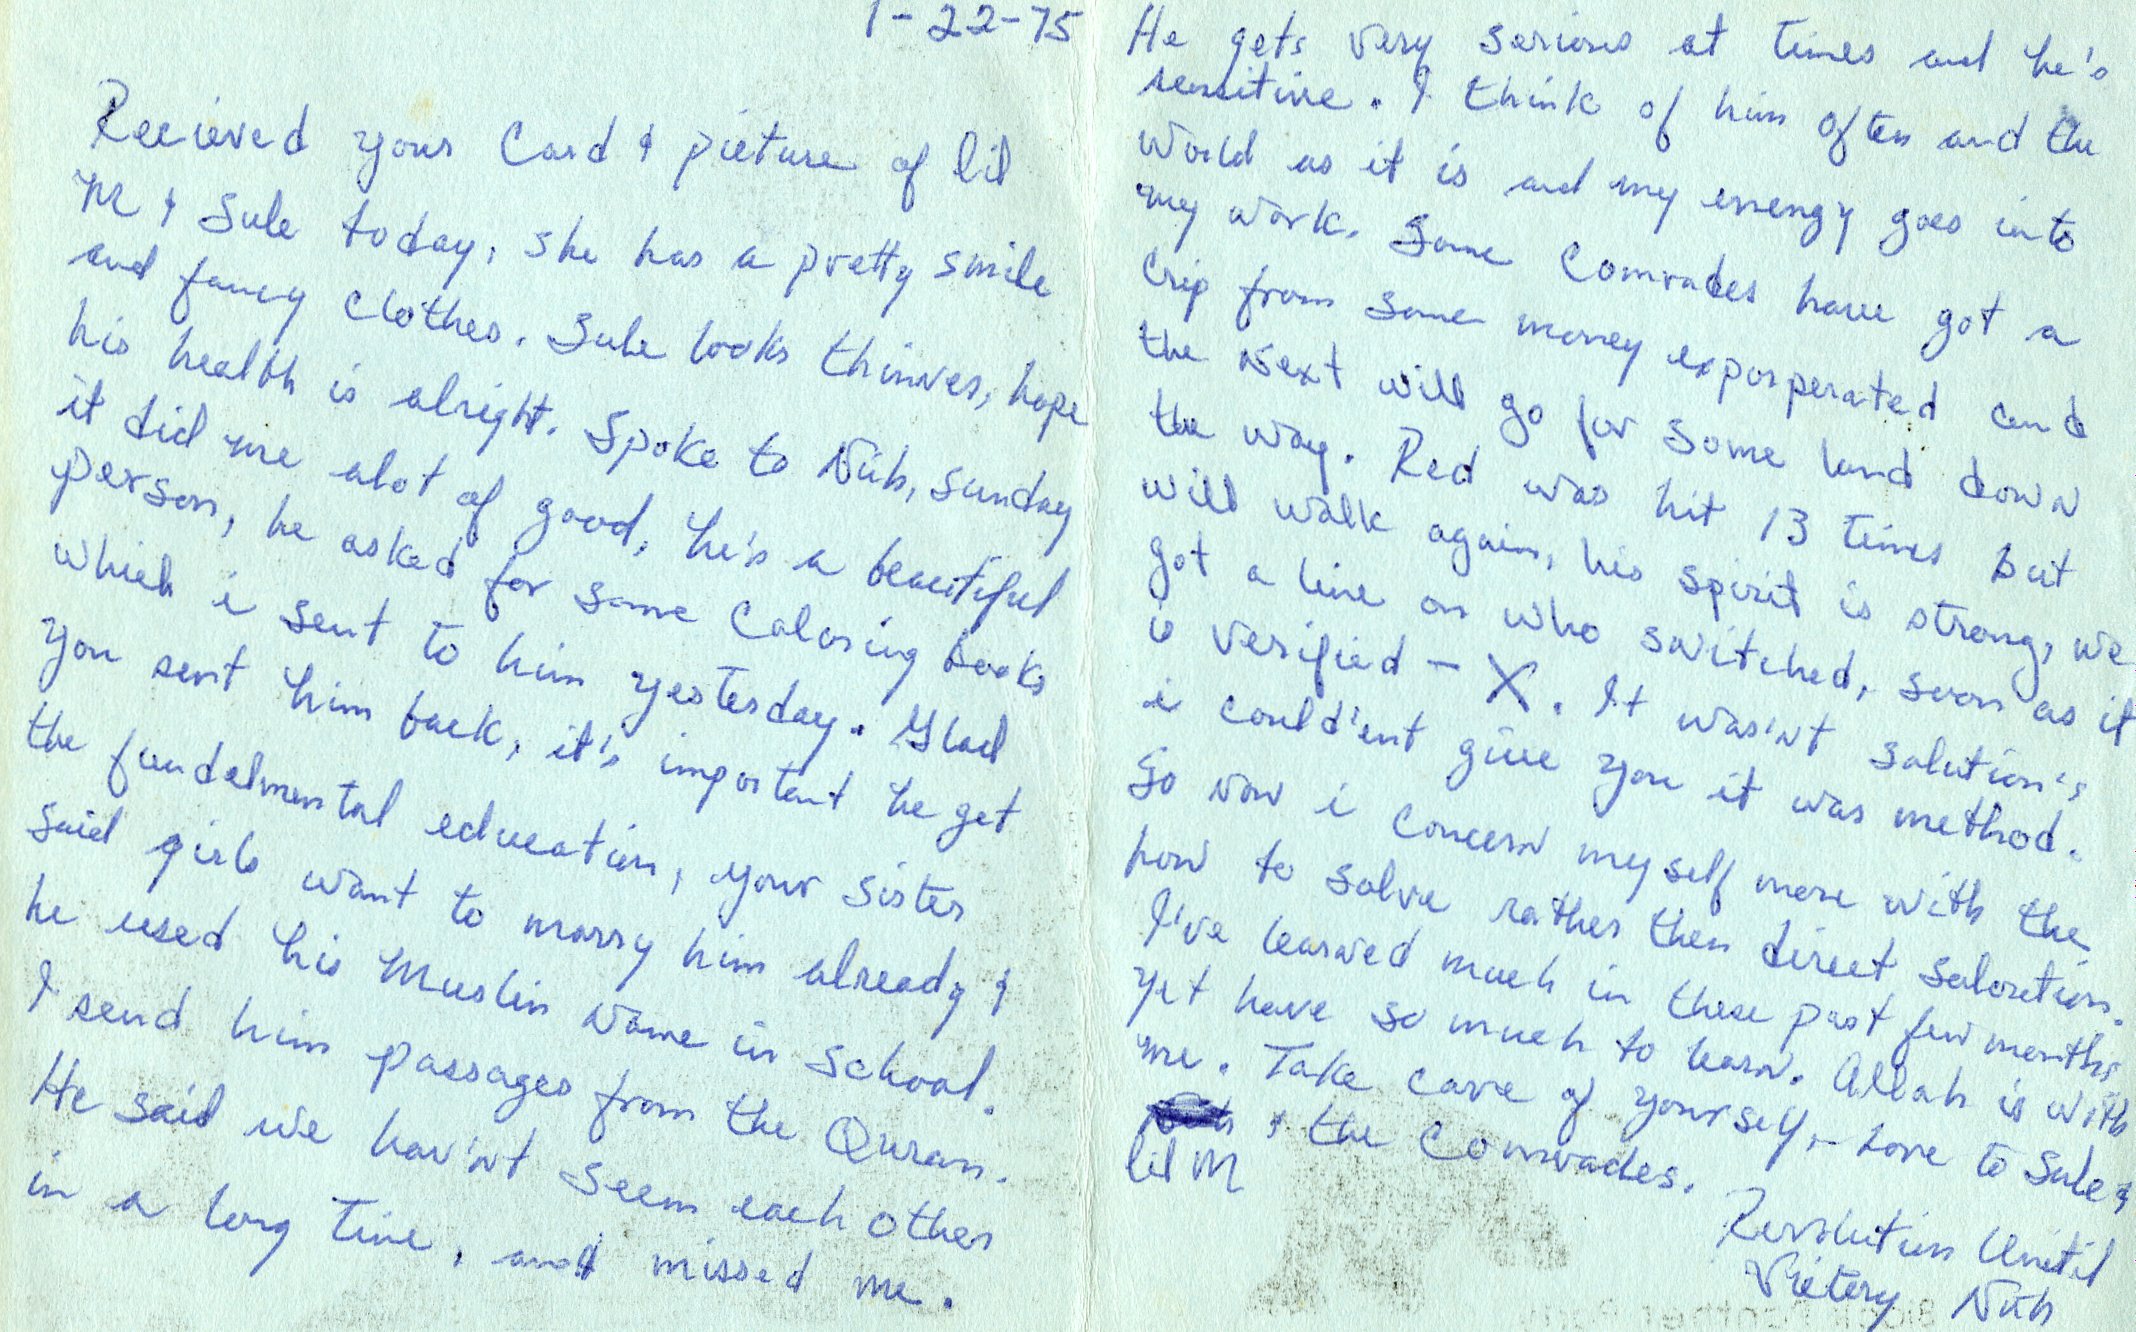 1-22-75
Recieved your Card & picture of lil
M & Sule today, she has a pretty smile
and fancy clothes. Sule looks thinner, hope
his health is alright. Spoke to Nuh, sunday
it did me alot of good, he's a beautiful
person, he asked for some Coloring books
which i sent to him yesterday. Glad
you sent him back, it's important he get
the fundelmental education, your sister
said girls want to marry him already &
he used his Muslim Name in school.
I send him passages from the Quran.
He said we hav'nt seem each other
in a long time, and missed me.
He gets very serious at times and he's
sensitive. I think of him often and the
World as it is and my enengy goes into
my work. Some Comrades have got a
Crip from some money exporperated and
the Next will go for some land down
the way. Red was hit 13 times but
will walk again, his spirit is strong, we
got a line on who switched, soon as it
is verified - X. It was'nt solution's
i could'ent give you it was method.
So Now i concern myself more with the
how to solve rather then direct solution.
I've learned much in these past few months
yet have so much to learn. Allah is with
me. Take care of yourself, - Love to Sule &
& the Comrades.
lil M
Revolution Unitil
Victory Nuh